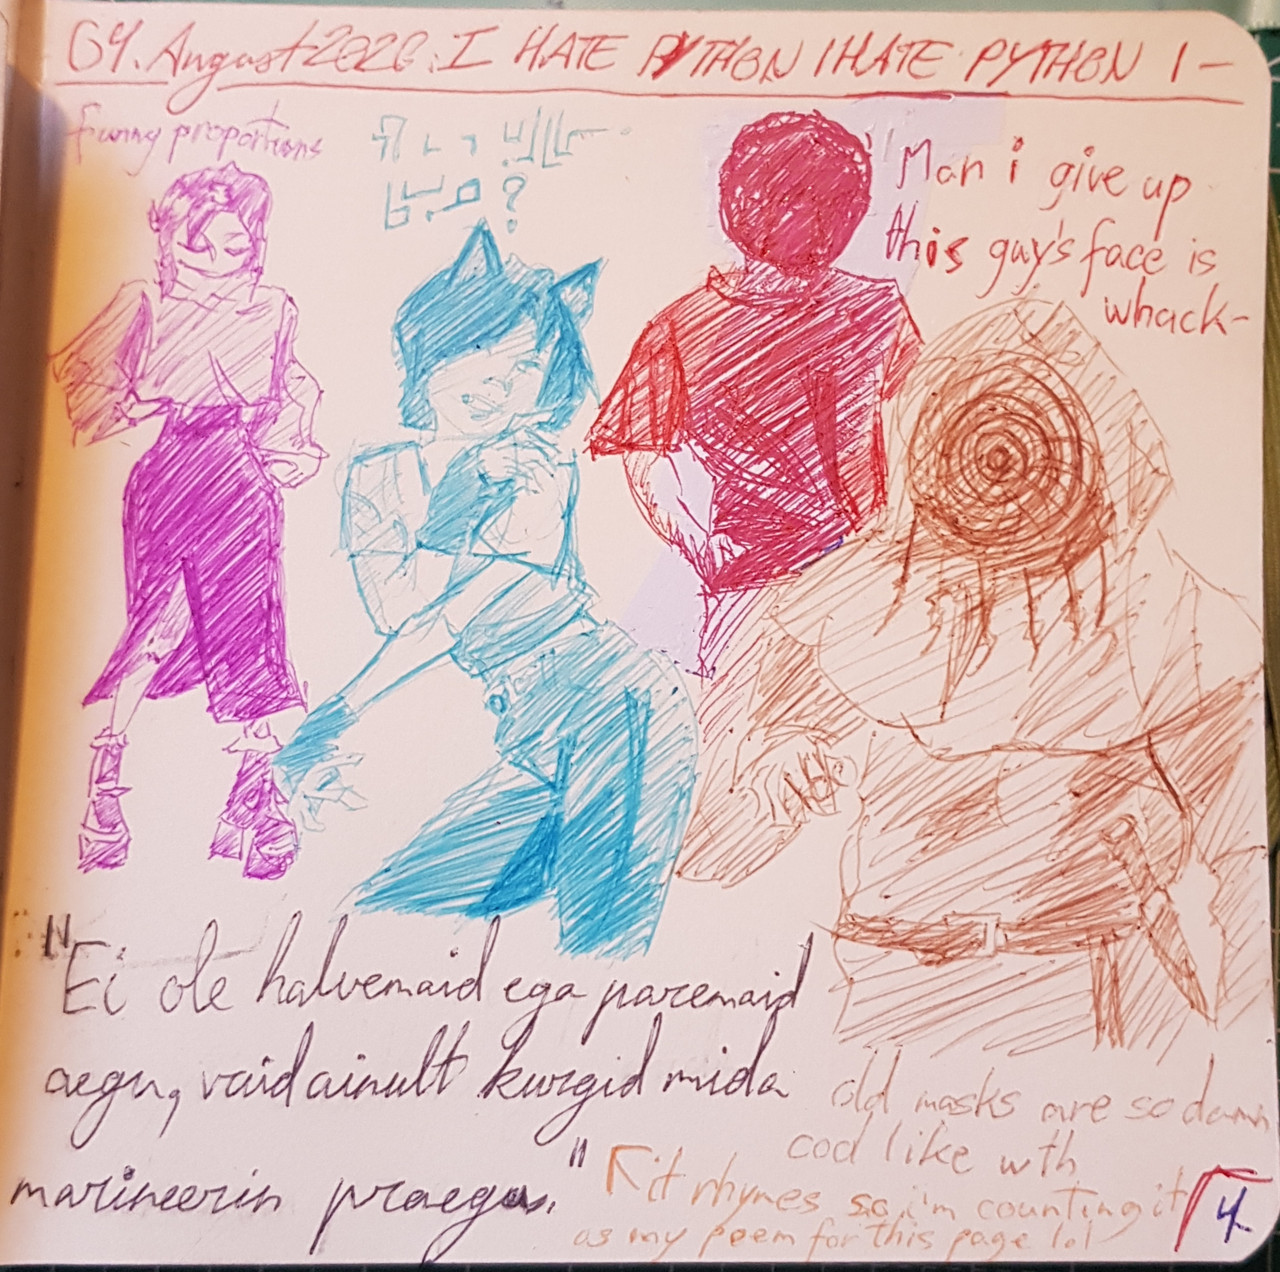 04. August 2026. I HATE PYTHON I HATE PYTHON I –
funny proportions
"Man i give up
this guy's face is
whack-
"Ei ole halvemaid ega paremaid
aegu, vaid ainult kurgid mida
marineerin praegu."
old masks are so damn
cool like wth
it rhymes so i'm counting it
as my poem for this page lol
4